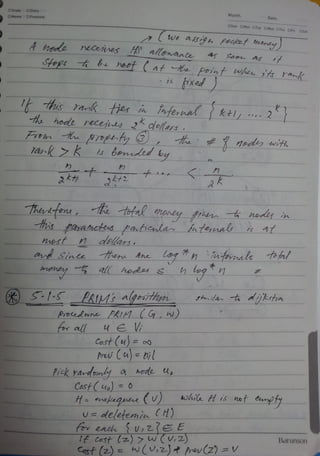 Month. Date.
(we assign pocket money)
A node receives its allowance as soon as it
stops to be root (at the point when its rank
is fixed)
If this rank ties in internal { k+1, .... 2^k }
the node receives 2^k dollars.
From the property ③, the # of nodes with
rank > k is bounded by
n/2^{k+1} + n/2^{k+2} + ... < n/2^k
Therefore, the total money given to nodes in
this particular internals is at
most n dollars.
and since there are log* n internals total
money to all nodes ≤ n log* n
* 5.1.5 PRIM's algorithm similar to dijkstra
procedure PRIM (G, w)
for all u ∈ V:
cost (u) = ∞
prev (u) = nil
Pick randomly a node u₀
cost (u₀) = 0
H = makequeue (V) while H is not empty
v = deletemin (H)
for each {v, z} ∈ E
if cost (z) > w (v, z)
cost (z) = w (v, z) & prev(z) = v
Barunson